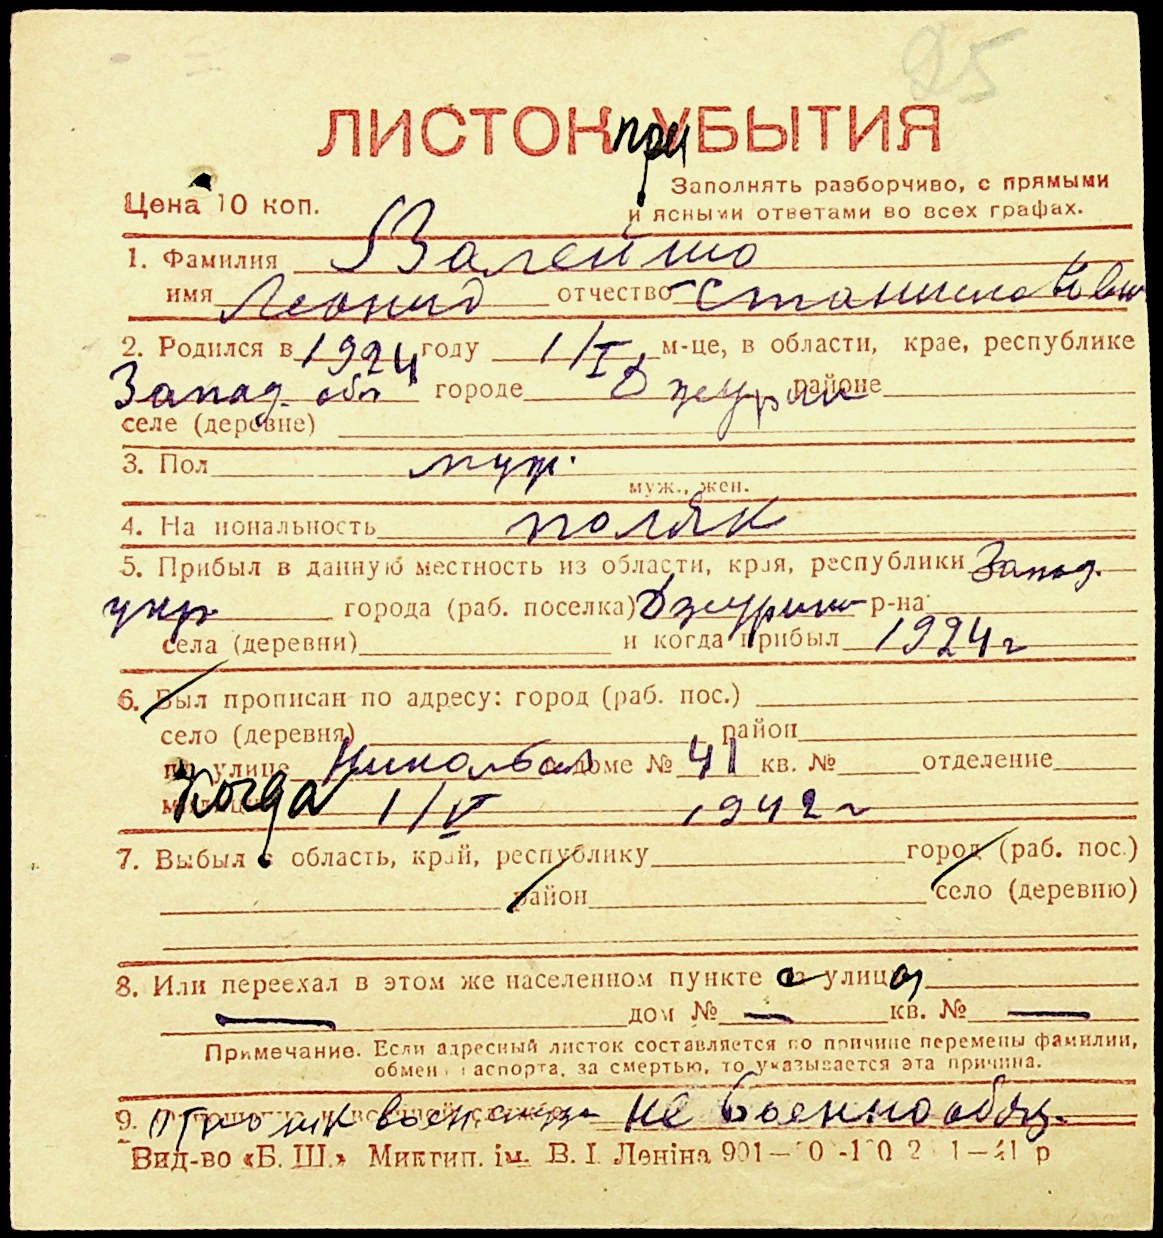 25
ЛИСТОК при УБЫТИЯ
Заполнять разборчиво, с прямыми
Цена 10 коп.
и ясными ответами во всех графах.
1. Фамилия Валейшо
имя Леонид отчество Станиславович
2. Родился в 1924 году 1/I м-це, в области, крае, республике
Запад. обл городе Джурин районе
селе (деревне)
3. Пол муж.
муж., жен.
4. На иональность поляк
5. Прибыл в данную местность из области, края, республики Запад.
укр города (раб. поселка) Джурин р-на
села (деревни) и когда прибыл 1924 г
6. Был прописан по адресу: город (раб. пос.)
село (деревня) район
по улице доме № 41 кв. № отделение
Когда 1/V 1942 г
7. Выбыл в область, край, республику город (раб. пос.)
район село (деревню)
8. Или переехал в этом же населенном пункте с улицы
— дом № — кв. № —
Примечание. Если адресный листок составляется по причине перемены фамилии,
обмен паспорта, за смертью, то указывается эта причина.
9. не военнообяз.
Вид-во «Б. Ш.» Миктип. ім. В. І. Леніна 901—